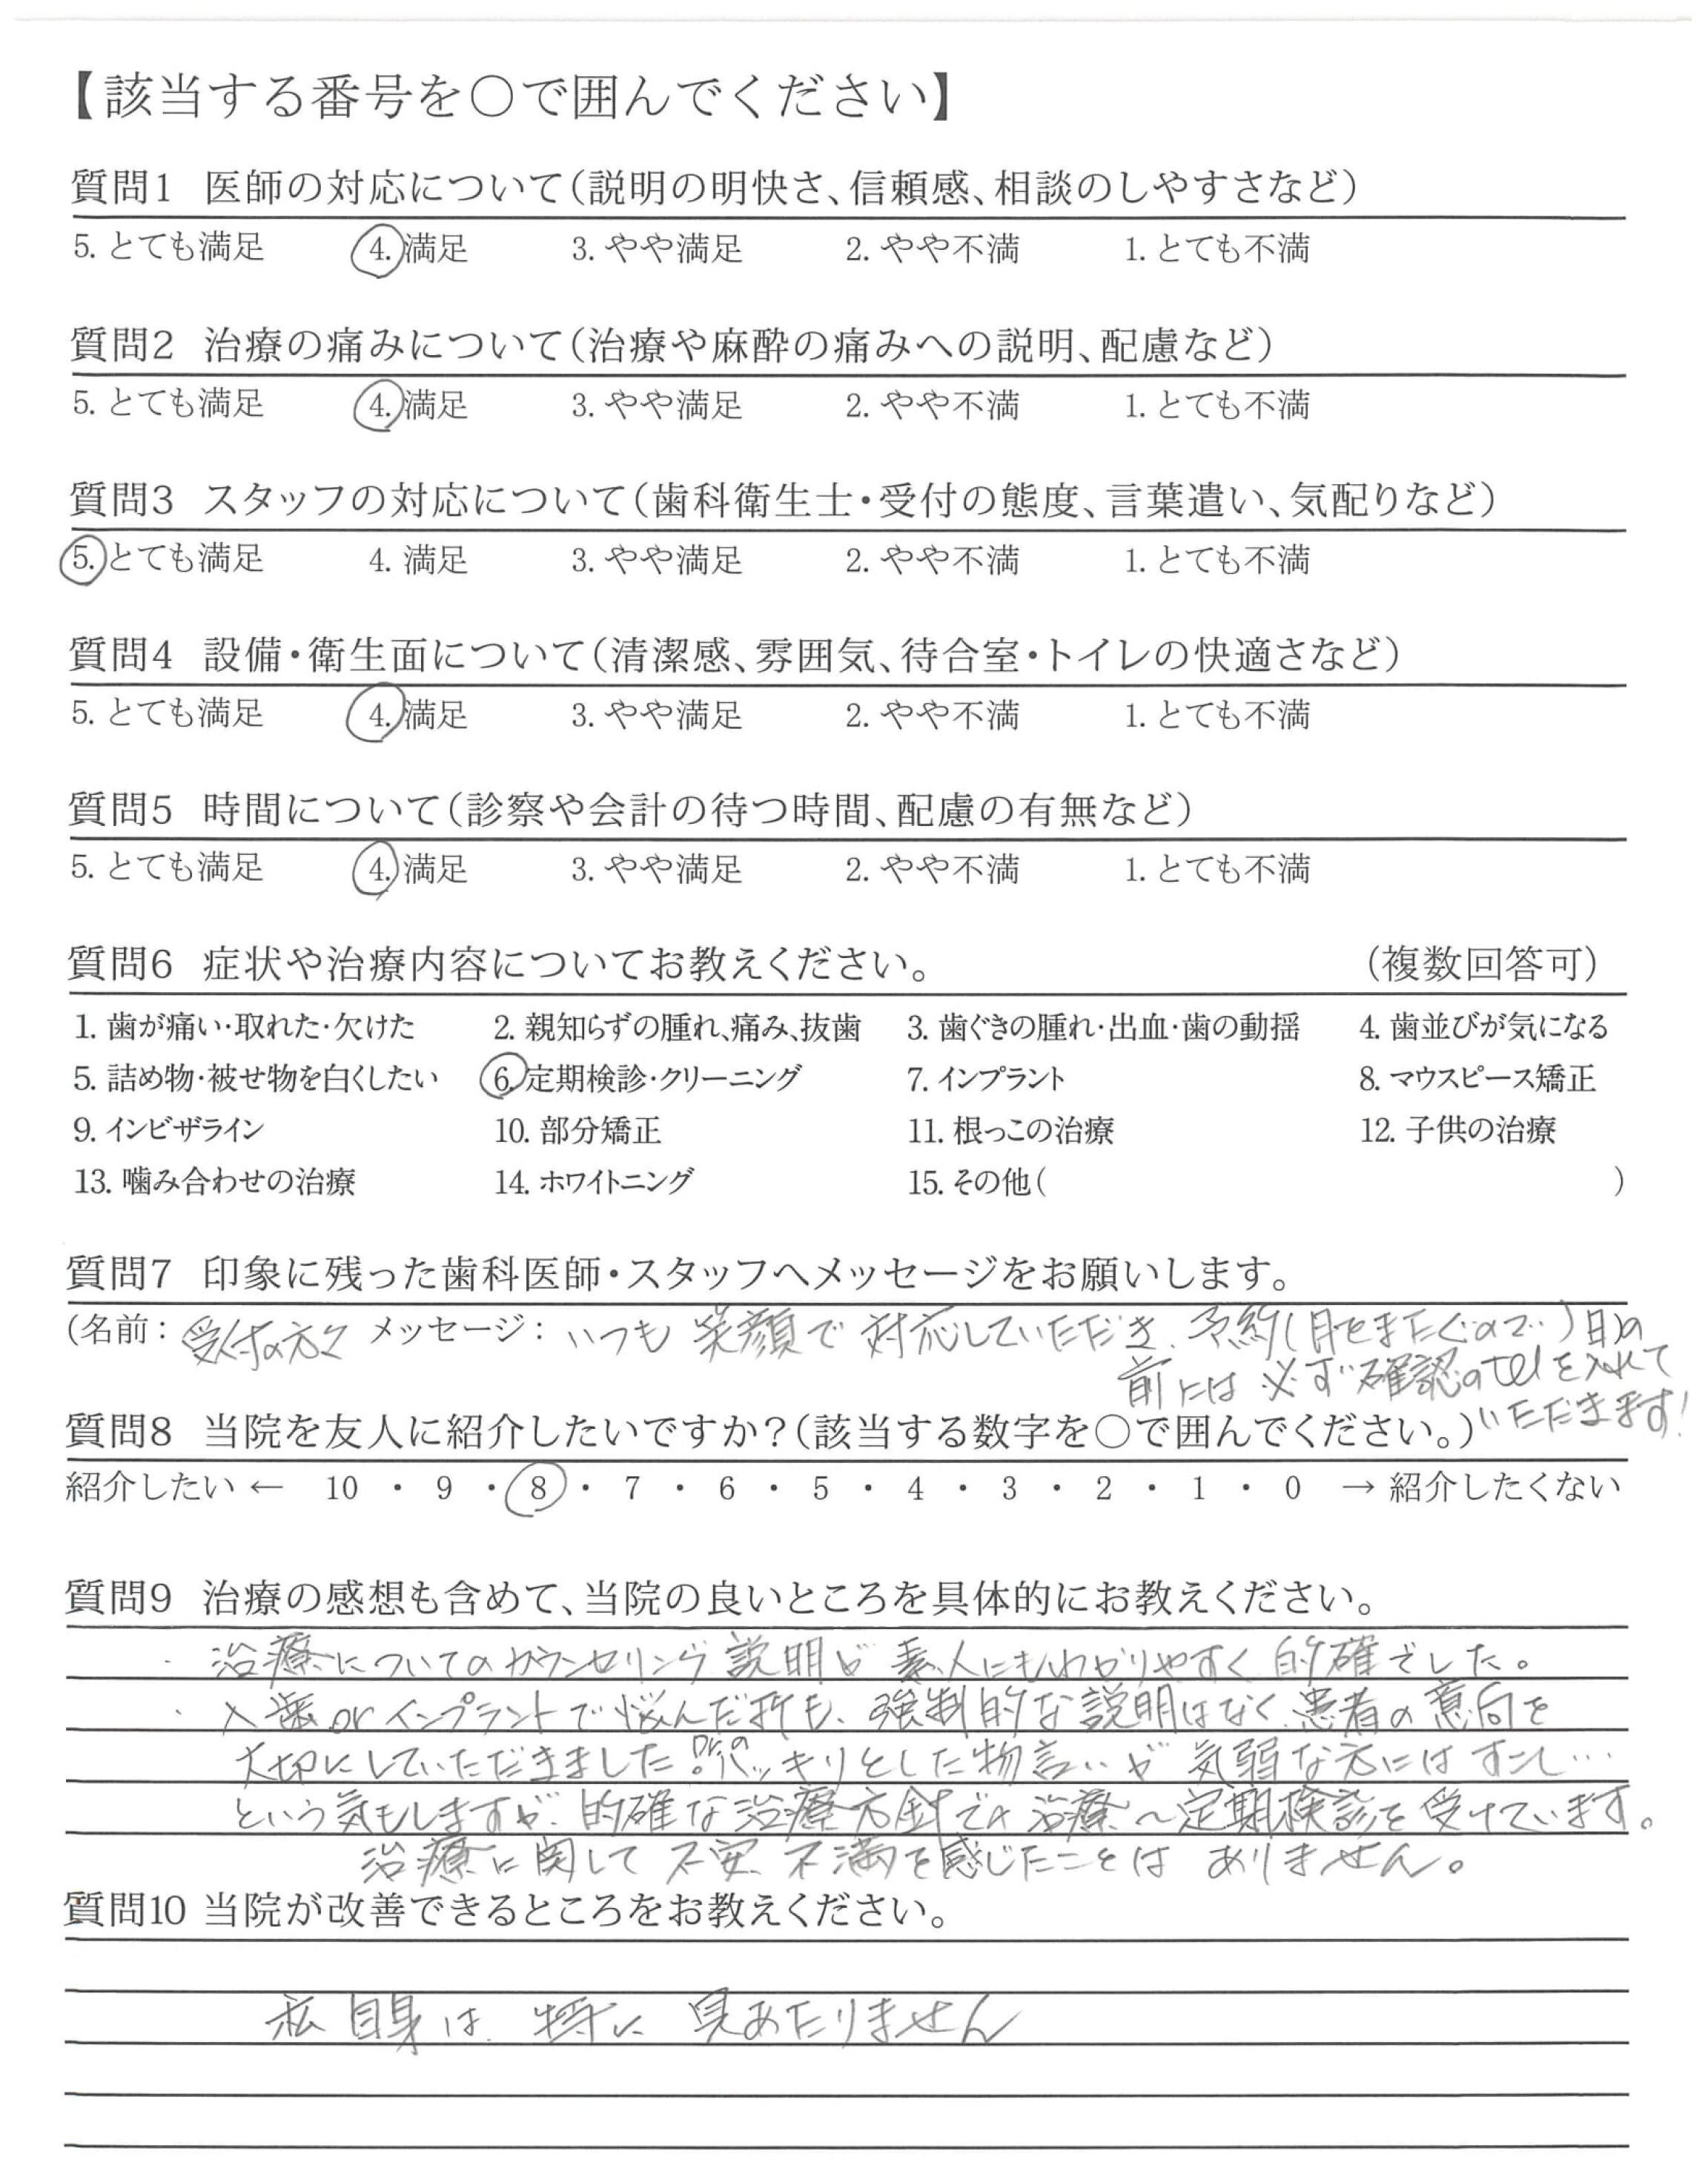 【該当する番号を○で囲んでください】
質問1 医師の対応について(説明の明快さ、信頼感、相談のしやすさなど)
5. とても満足 4. 満足 3. やや満足 2. やや不満 1. とても不満
質問2 治療の痛みについて(治療や麻酔の痛みへの説明、配慮など)
5. とても満足 4. 満足 3. やや満足 2. やや不満 1. とても不満
質問3 スタッフの対応について(歯科衛生士・受付の態度、言葉遣い、気配りなど)
5. とても満足 4. 満足 3. やや満足 2. やや不満 1. とても不満
質問4 設備・衛生面について(清潔感、雰囲気、待合室・トイレの快適さなど)
5. とても満足 4. 満足 3. やや満足 2. やや不満 1. とても不満
質問5 時間について(診察や会計の待つ時間、配慮の有無など)
5. とても満足 4. 満足 3. やや満足 2. やや不満 1. とても不満
質問6 症状や治療内容についてお教えください。 (複数回答可)
1. 歯が痛い・取れた・欠けた 2. 親知らずの腫れ、痛み、抜歯 3. 歯ぐきの腫れ・出血・歯の動揺 4. 歯並びが気になる
5. 詰め物・被せ物を白くしたい 6. 定期検診・クリーニング 7. インプラント 8. マウスピース矯正
9. インビザライン 10. 部分矯正 11. 根っこの治療 12. 子供の治療
13. 噛み合わせの治療 14. ホワイトニング 15. その他( )
質問7 印象に残った歯科医師・スタッフへメッセージをお願いします。
(名前: 受付の方々 メッセージ: いつも 笑顔で 対応していただき、予約(月をまたぐので…)日の
前には 必ず確認のtelを入れて
いただきます!
質問8 当院を友人に紹介したいですか?(該当する数字を○で囲んでください。)
紹介したい ← 10 ・ 9 ・ 8 ・ 7 ・ 6 ・ 5 ・ 4 ・ 3 ・ 2 ・ 1 ・ 0 → 紹介したくない
質問9 治療の感想も含めて、当院の良いところを具体的にお教えください。
・治療についてのカウンセリング 説明が 素人にもわかりやすく 的確でした。
・入歯orインプラントで悩んだ折も、強制的な説明はなく、患者の意向を
大切にしていただきました。Drのハッキリとした物言いが 気弱な方には すこし…
という気もしますが、的確な治療方針での 治療〜定期検診を受けています。
治療に関して 不安、不満を感じたことは ありません。
質問10 当院が改善できるところをお教えください。
私自身は、特に 見あたりません